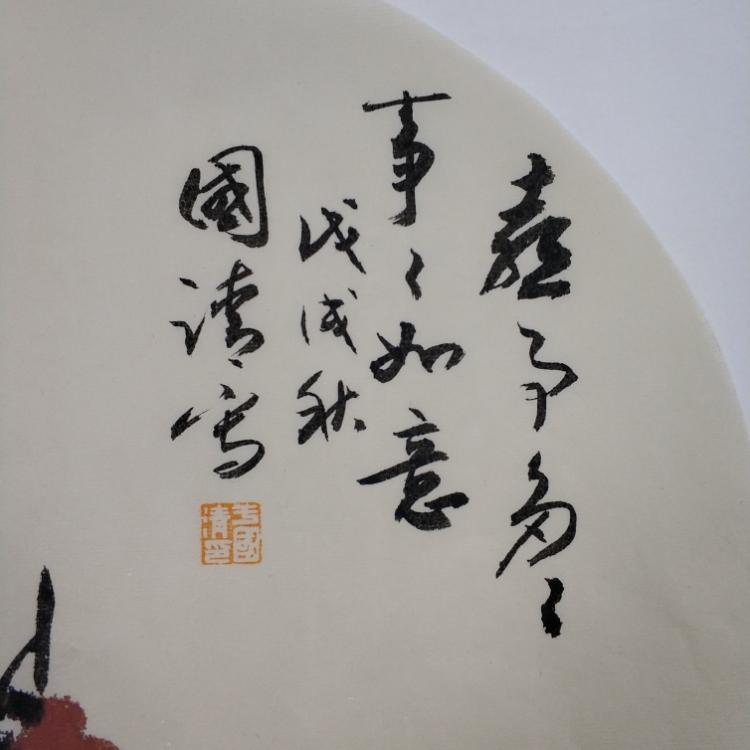 喜事多々
事々如意
戊戌秋
國清写
國清印